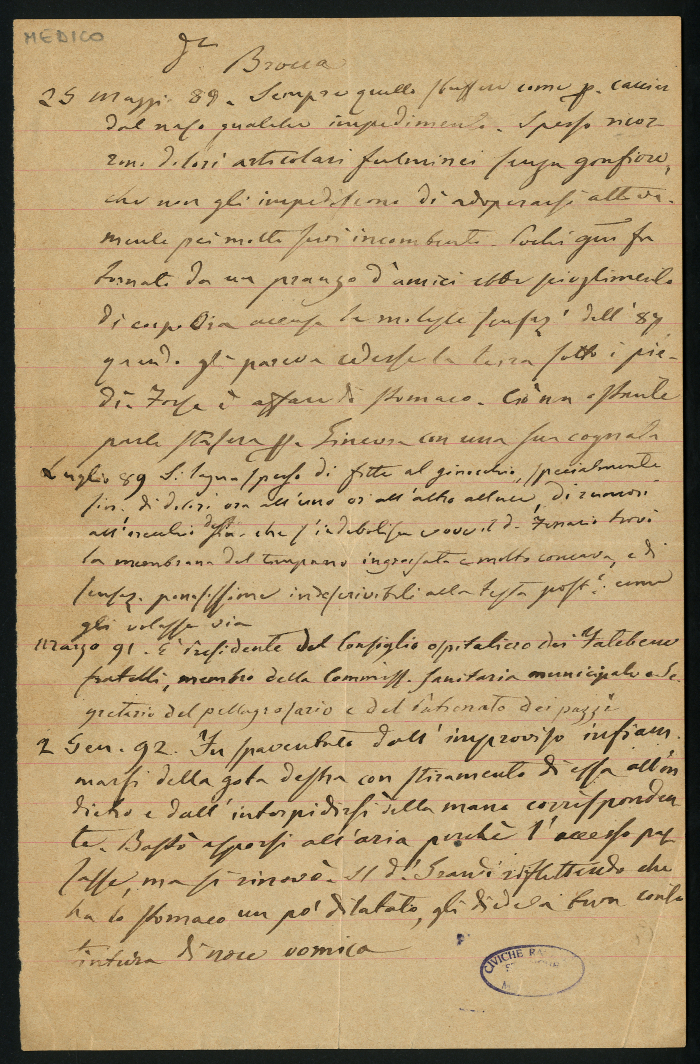 MEDICO
Dr Brocca
25 Maggio 89. Sempre quello sbuffare come p. cacciar
dal naso qualche impedimento. Spesso ricor-
rono dolori articolari fulminei senza gonfiore,
che non gli impediscono di adoperarsi attiva-
mente pei molti suoi incombenti. Pochi gni fa
tornato da un pranzo d'amici ebbe scioglimento
di corpo Ora accusa le moleste sensaz.i dell' 87
quando gli pareva cedesse la terra sotto i pie-
di. Forse è affare di stomaco. Ciò non ostante
parte stasera Ginevra con una sua cognata
Luglio 89 Si lagna spesso di fitte al ginocchio, specialmente
sin. di dolori ora all'uno or all'altro alluce, di rumori
all'orecchio che s'indebolisce ove il dr. Ferrario trovò
la membrana del timpano ingrossata e molto concava, e di
sensaz. penosissime indescrivibili alla testa post.e come
gli volasse via
Marzo 91. È Presidente del Consiglio ospitaliero dei Fatebene
fratelli, membro della Commiss. Sanitaria municipale e Se-
gretario del pellagrosario e del Patronato dei pazzi
2 Gen. 92. Fu spaventato dall' improvviso infiam-
marsi della gota destra con stiramento di essa all'in
dietro e dall' intorpidirsi della mano corrisponden
te. Bastò esporsi all'aria perchè l' accesso pas
sasse, ma si rinnovò. Il dr. Grandi riflettendo che
ha lo stomaco un po' dilatato, gli diede a buon conto
tintura di noce vomica
CIVICHE